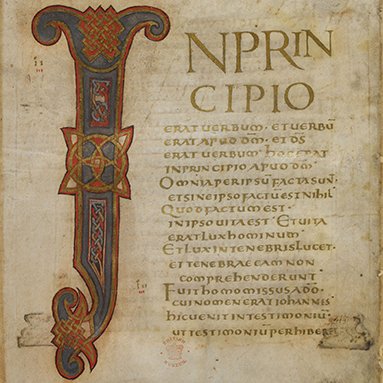 INPRIN
CIPIO
ERAT UERBUM· ET UERBŪ
ERAT APUD DM̄· ET DS̄
ERAT UERBUM· hOC ERAT
IN PRINCIPIO APUD DM̄·
OMNIA PER IPSŪ FACTA SUN̄
ET SINE IPSO FACTU EST NIhIL
QUOD FACTUM EST·
IN IPSO UITA EST· ET UITA
ERAT LUX hOMINUM·
ET LUX IN TENEBRIS LUCET·
ET TENEBRAE EAM NON
COMPREhENDERUNT
FUIT hOMO MISSUS A DŌ·
CUI NOMEN ERAT IOhANNIS
hIC UENIT IN TESTIMONIŪ
UT TESTIMONIŪ PERhIBE